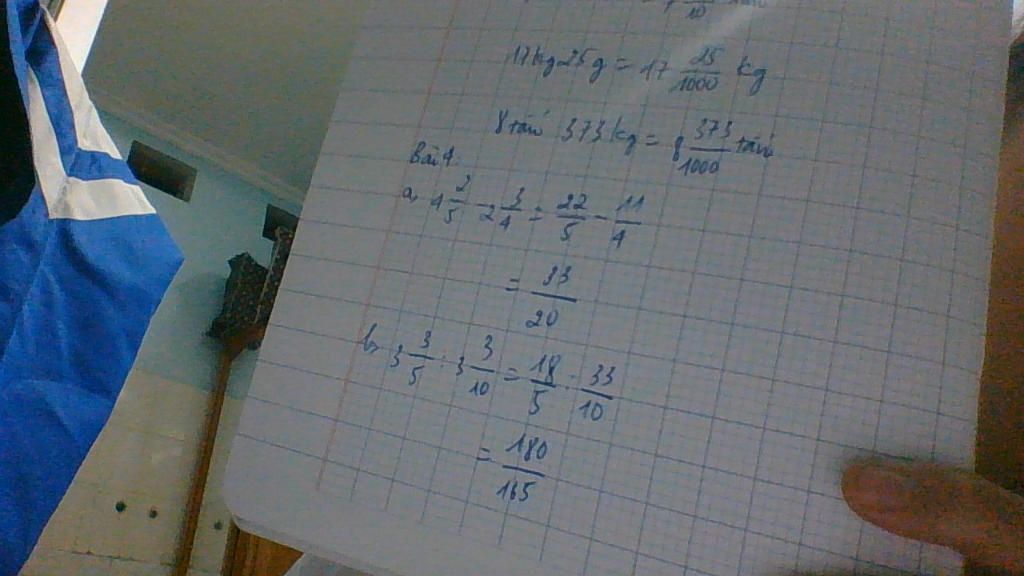 10
17kg25g = 17 25/1000 kg
8 tấn 373kg = 8 373/1000 tấn
Bài 4:
a, 4 2/5 - 2 3/4 = 22/5 - 11/4
= 33/20
b, 3 3/5 : 3 3/10 = 18/5 : 33/10
= 180/165